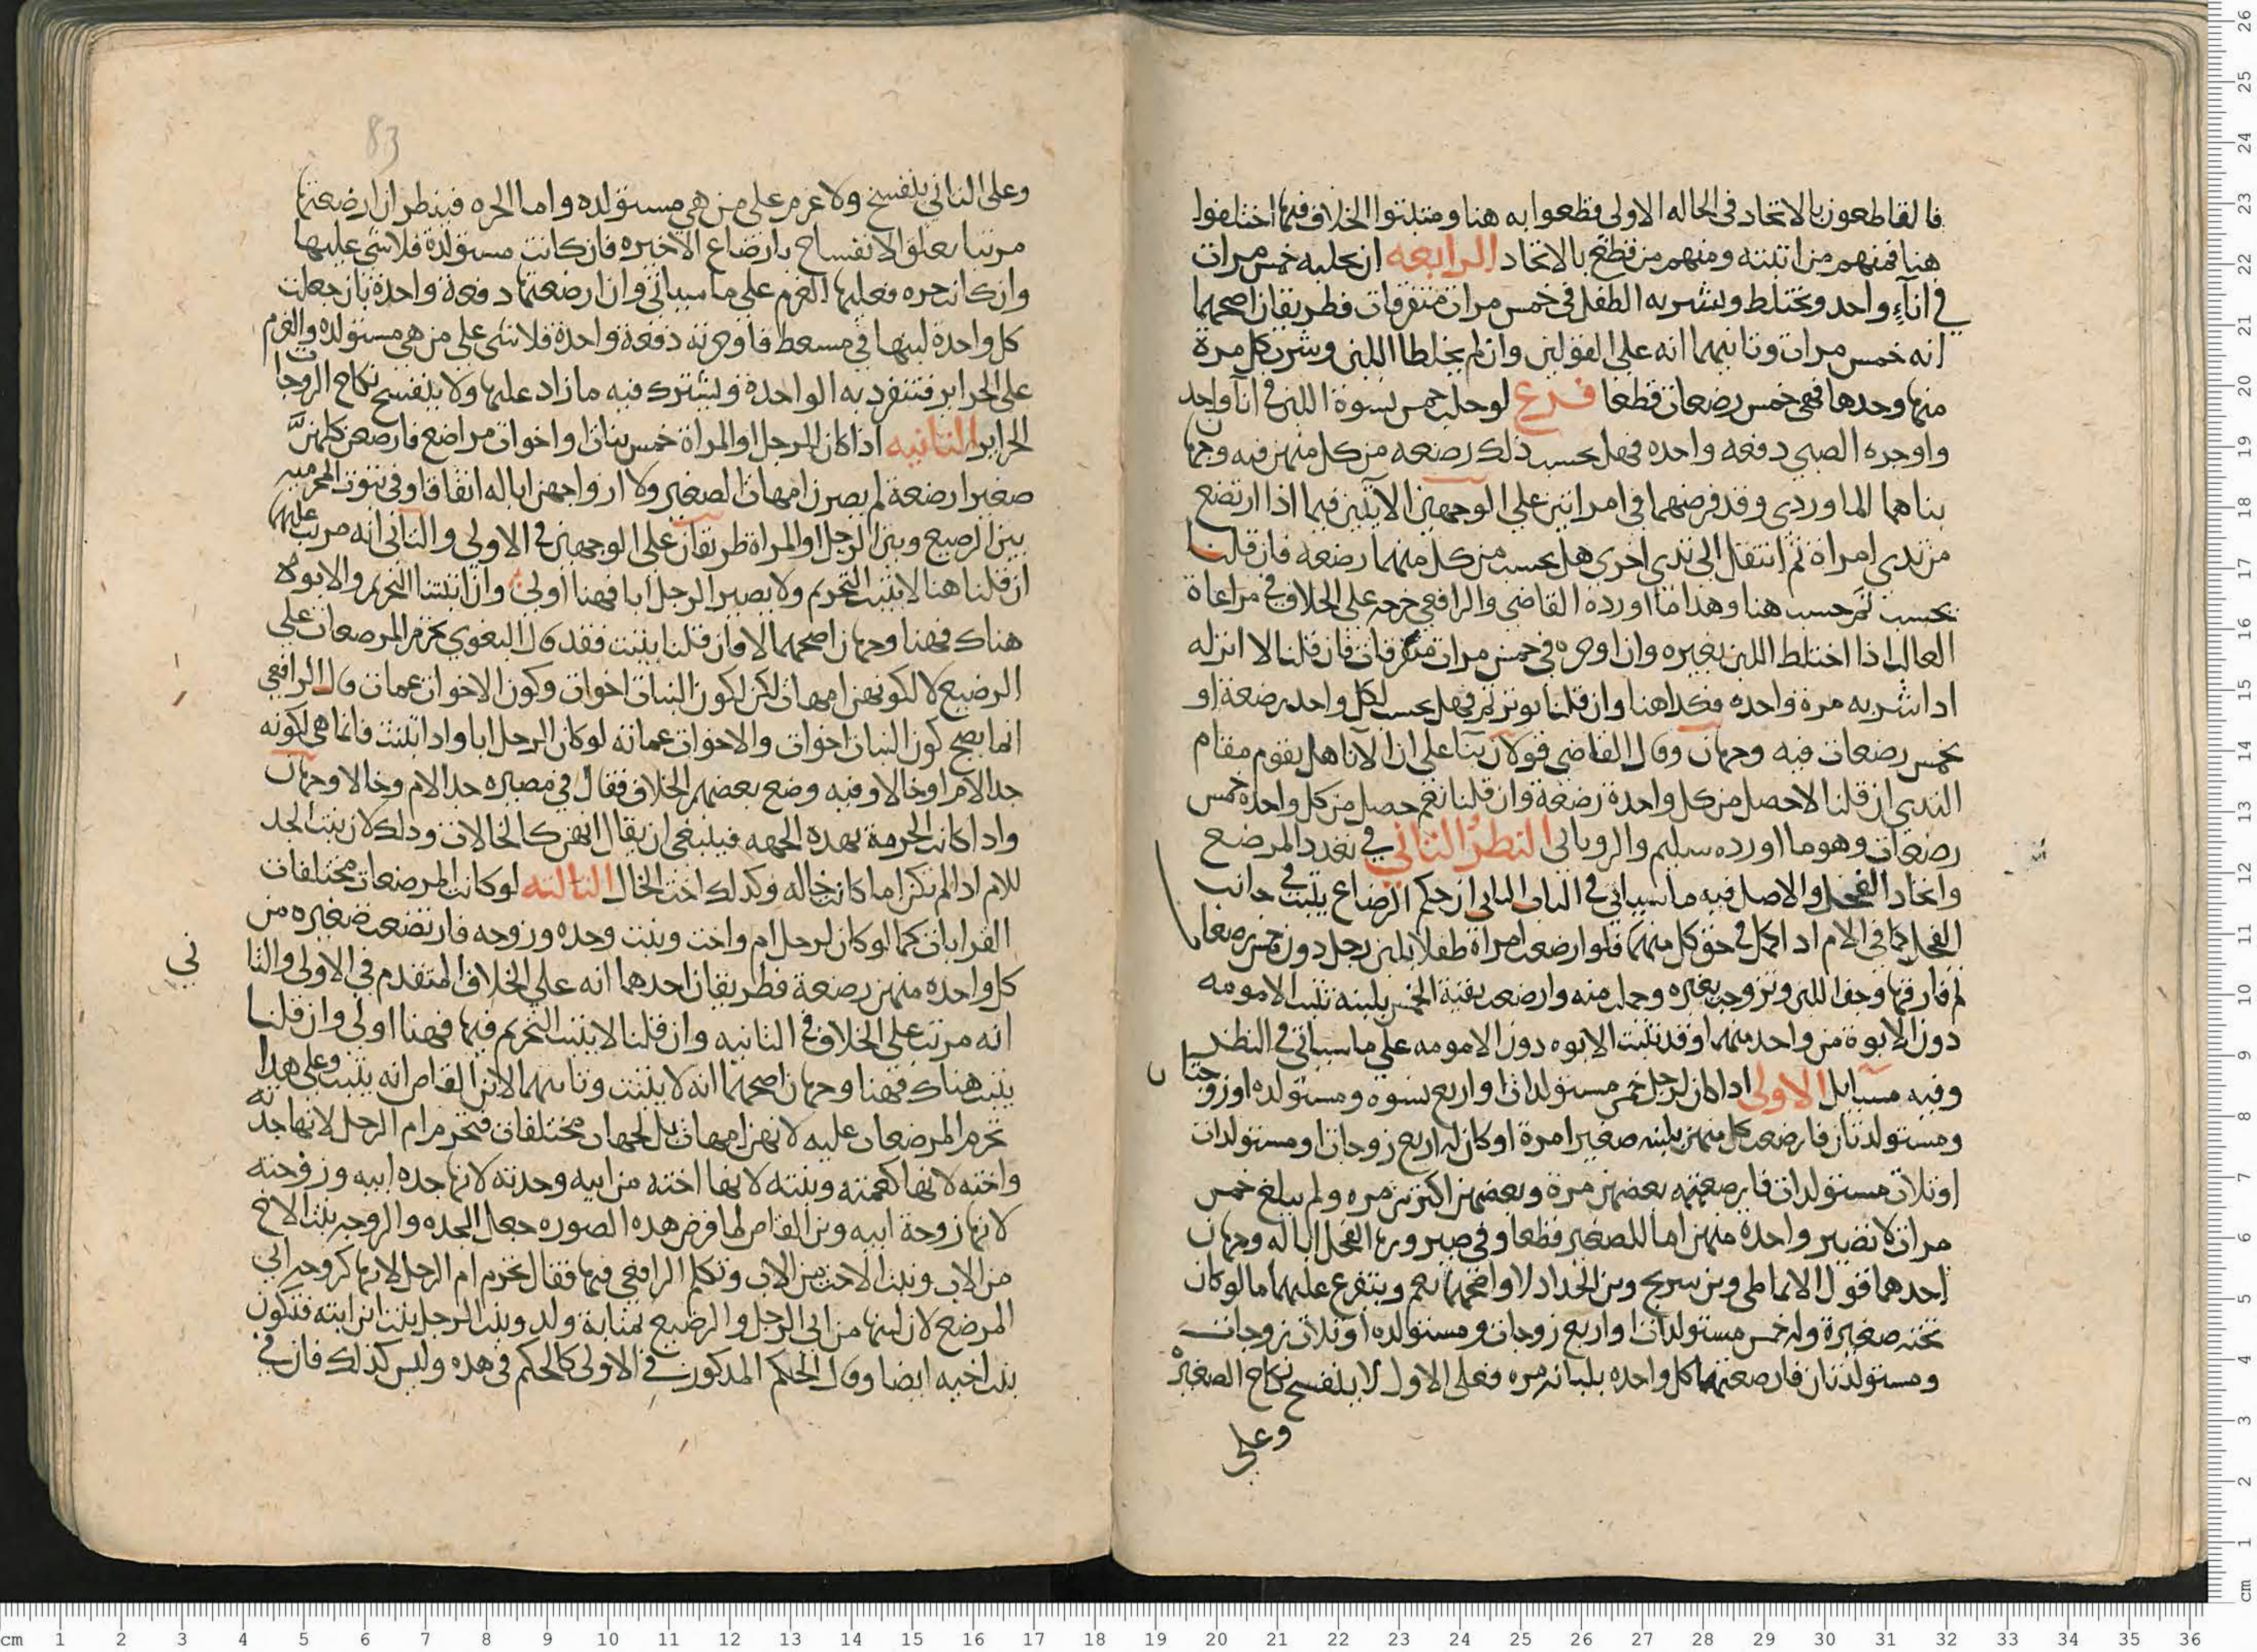 فالقاطعون بالاتحاد في الحاله الاولى قطعوا به هنا ومثبتوا الخلاف فيها اختلفوا
هنا فمنهم من اثبته ومنهم من قطع بالاتحاد الرابعه ان يحلبه خمس مرات
في اناء واحد ويختلط ويشربه الطفل في خمس مرات متفرقات فطريقان اصحهما
انه خمس مرات وثانيهما انه على القولين وان لم يختلطا اللبن وشرب كل مرة
منها وحدها فهي خمس رضعات قطعا فرع لو حلب خمس نسوة اللبن في انا واحد
واوجره الصبي دفعه واحده فهل يحسب ذلك رضعه من كل منهن فيه وجهان
بناهما الماوردي وقد فرضهما في امراتين على الوجهين الآتيين فيما اذا ارتضع
من ثدي امراة ثم انتقل الى ثدي اخرى هل يحسب من كل منهما رضعه فان قلنا
يحسب ثم حسب هنا وهذا ما اورده القاضي والرافعي خرجه على الخلاف في مراعاة
الغالب اذا اختلط اللبن بغيره وان اوجره في خمس مرات متفرقات فان قلنا لا اثر له
اذا شربه مرة واحده فكذا هنا وان قلنا يوثر ثم فهل يحسب لكل واحد رضعة او
خمس رضعات فيه وجهان وقال القاضي قولان بناء على ان الانا هل يقوم مقام
الثدي ان قلنا لا حصل من كل واحدة رضعة وان قلنا نعم حصل من كل واحده خمس
رضعات وهو ما اورده سليم والروياني النظر الثاني في تعدد المرضع
واتحاد الفحل والاصل فيه ما سياتي في الباب الثاني ان حكم الرضاع يثبت في جانب
الفحل كما في الام اذا كمل في حق كل منهما فلو ارضعت امراة طفلا بلبن رجل دون خمس رضعات
ثم فارقها وجف اللبن وتزوجت بغيره وحملت منه وارضعت بقية الخمس بلبنه تثبت الامومه
دون الابوة من واحد منهما وقد تثبت الابوه دون الامومه على ما سياتي في النظر
وفيه مسايل الاولى اذا كان لرجل خمس مستولدات او اربع نسوة ومستولده او زوجتان
ومستولدتان فارضعت كل منهن بلبنه صغيرا مرة او كان له اربع زوجات او مستولدات
او ثلاث مستولدات فارضعته بعضهن مرة وبعضهن اكثر من مره ولم يبلغ خمس
مرات لا تصير واحدة منهن اما للصغير قطعا وفي صيرورة الفحل ابا له وجهان
احدهما قول الانماطي وبن سريج وبن الحداد لا واصحهما نعم ويتفرع عليهما ما لو كان
تحته صغيرة وله خمس مستولدات او اربع زوجات ومستولده او ثلاث زوجات
ومستولدتان فارضعتها كل واحده بلبانه مره فعلى الاول لا ينفسخ نكاح الصغيرة
وعلى
83
وعلى الثاني ينفسخ ولا غرم على من هي مستولده واما الحره فينظر ان ارضعتها
مرتبا يعلق الانفساخ بارضاع الاخيره فان كانت مستولدة فلا شي عليها
وان كانت حره فعليها الغرم على ما سياتي وان ارضعتها دفعة واحدة بان جعلت
كل واحدة لبنها في مسعط فاوجرته دفعة واحدة فلا شي على من هي مستولده والغرم
على الحراير فتنفرد به الواحدة ويشترك فيه ما زاد عليها ولا ينفسخ نكاح الزوجات
الحراير الثانيه اذا كان للرجل او المراة خمس بنات او اخوات مراضع فارضعن كلهن
صغيرا رضعة لم يصرن امهات الصغير ولا ازواجهن ابا له اتفاقا وفي ثبوت المحرميه
بين الرضيع وبين الرجل او المراة طريقان على الوجهين في الاولي والثاني انه مرتب عليها
ان قلنا هنا لا يثبت التحريم ولا يصير الرجل ابا فهنا اولى وان اثبتنا التحريم والابوة
هناك فهنا وجهان اصحهما لا وان قلنا يثبت فقد قال البغوي يحرم المرضعات على
الرضيع لا لكونهن امهات لكن لكون البنات اخوات وكون الاخوات عمات قال الرافعي
انما يصح كون البنات اخوات والاخوات عماته لو كان الرجل ابا واذا اثبتت فانما هي لكونه
جد الام او خالا وفيه وضع بعضهم الخلاف فقال في مصيره جد الام وخالا وجهان
واذا كانت الحرمة بهذه الجهه فينبغي ان يقال انهن كالخالات وذلك لان بنت الجد
للام اذا لم تكن اما كانت خاله وكذلك اخت الخال الثالثه لو كانت المرضعات مختلفات
القرابات كما لو كان لرجل ام واخت وبنت وجده وزوجه فارتضعت صغيره من
كل واحده منهن رضعة فطريقان احدهما انه على الخلاف المتقدم في الاولى والثا
ني
انه مرتب على الخلاف في الثانيه وان قلنا لا يثبت التحريم فيها فهنا اولى وان قلنا
يثبت هناك فهنا وجهان اصحهما انه لا يثبت وثانيهما لابن القاص انه يثبت وعلى هذا
تحرم المرضعات عليه لا لانهن امهات بل لجهات مختلفات فتحرم ام الرجل لانها جدته
واخته لانها كعمته وبنته لانها اخته من ابيه وجدته لانها جده ابيه وزوجته
لانها زوجة ابيه وبن القاص لما فرض هذه الصوره جعل بدل الجده والزوجه بنت الاخ
من الاب وبنت الاخت من الاب وتكلم الرافعي فيها فقال تحرم ام الرجل لانها كزوجه ابي
المرضع لان لبنها من ابي الرجل والرضيع بمثابة ولد وبنت الرجل بنت ابن ابنه فتكون
بنت اخيه ايضا وقال الحكم المذكور في الاولى كالحكم في هذه وليس كذلك فان في